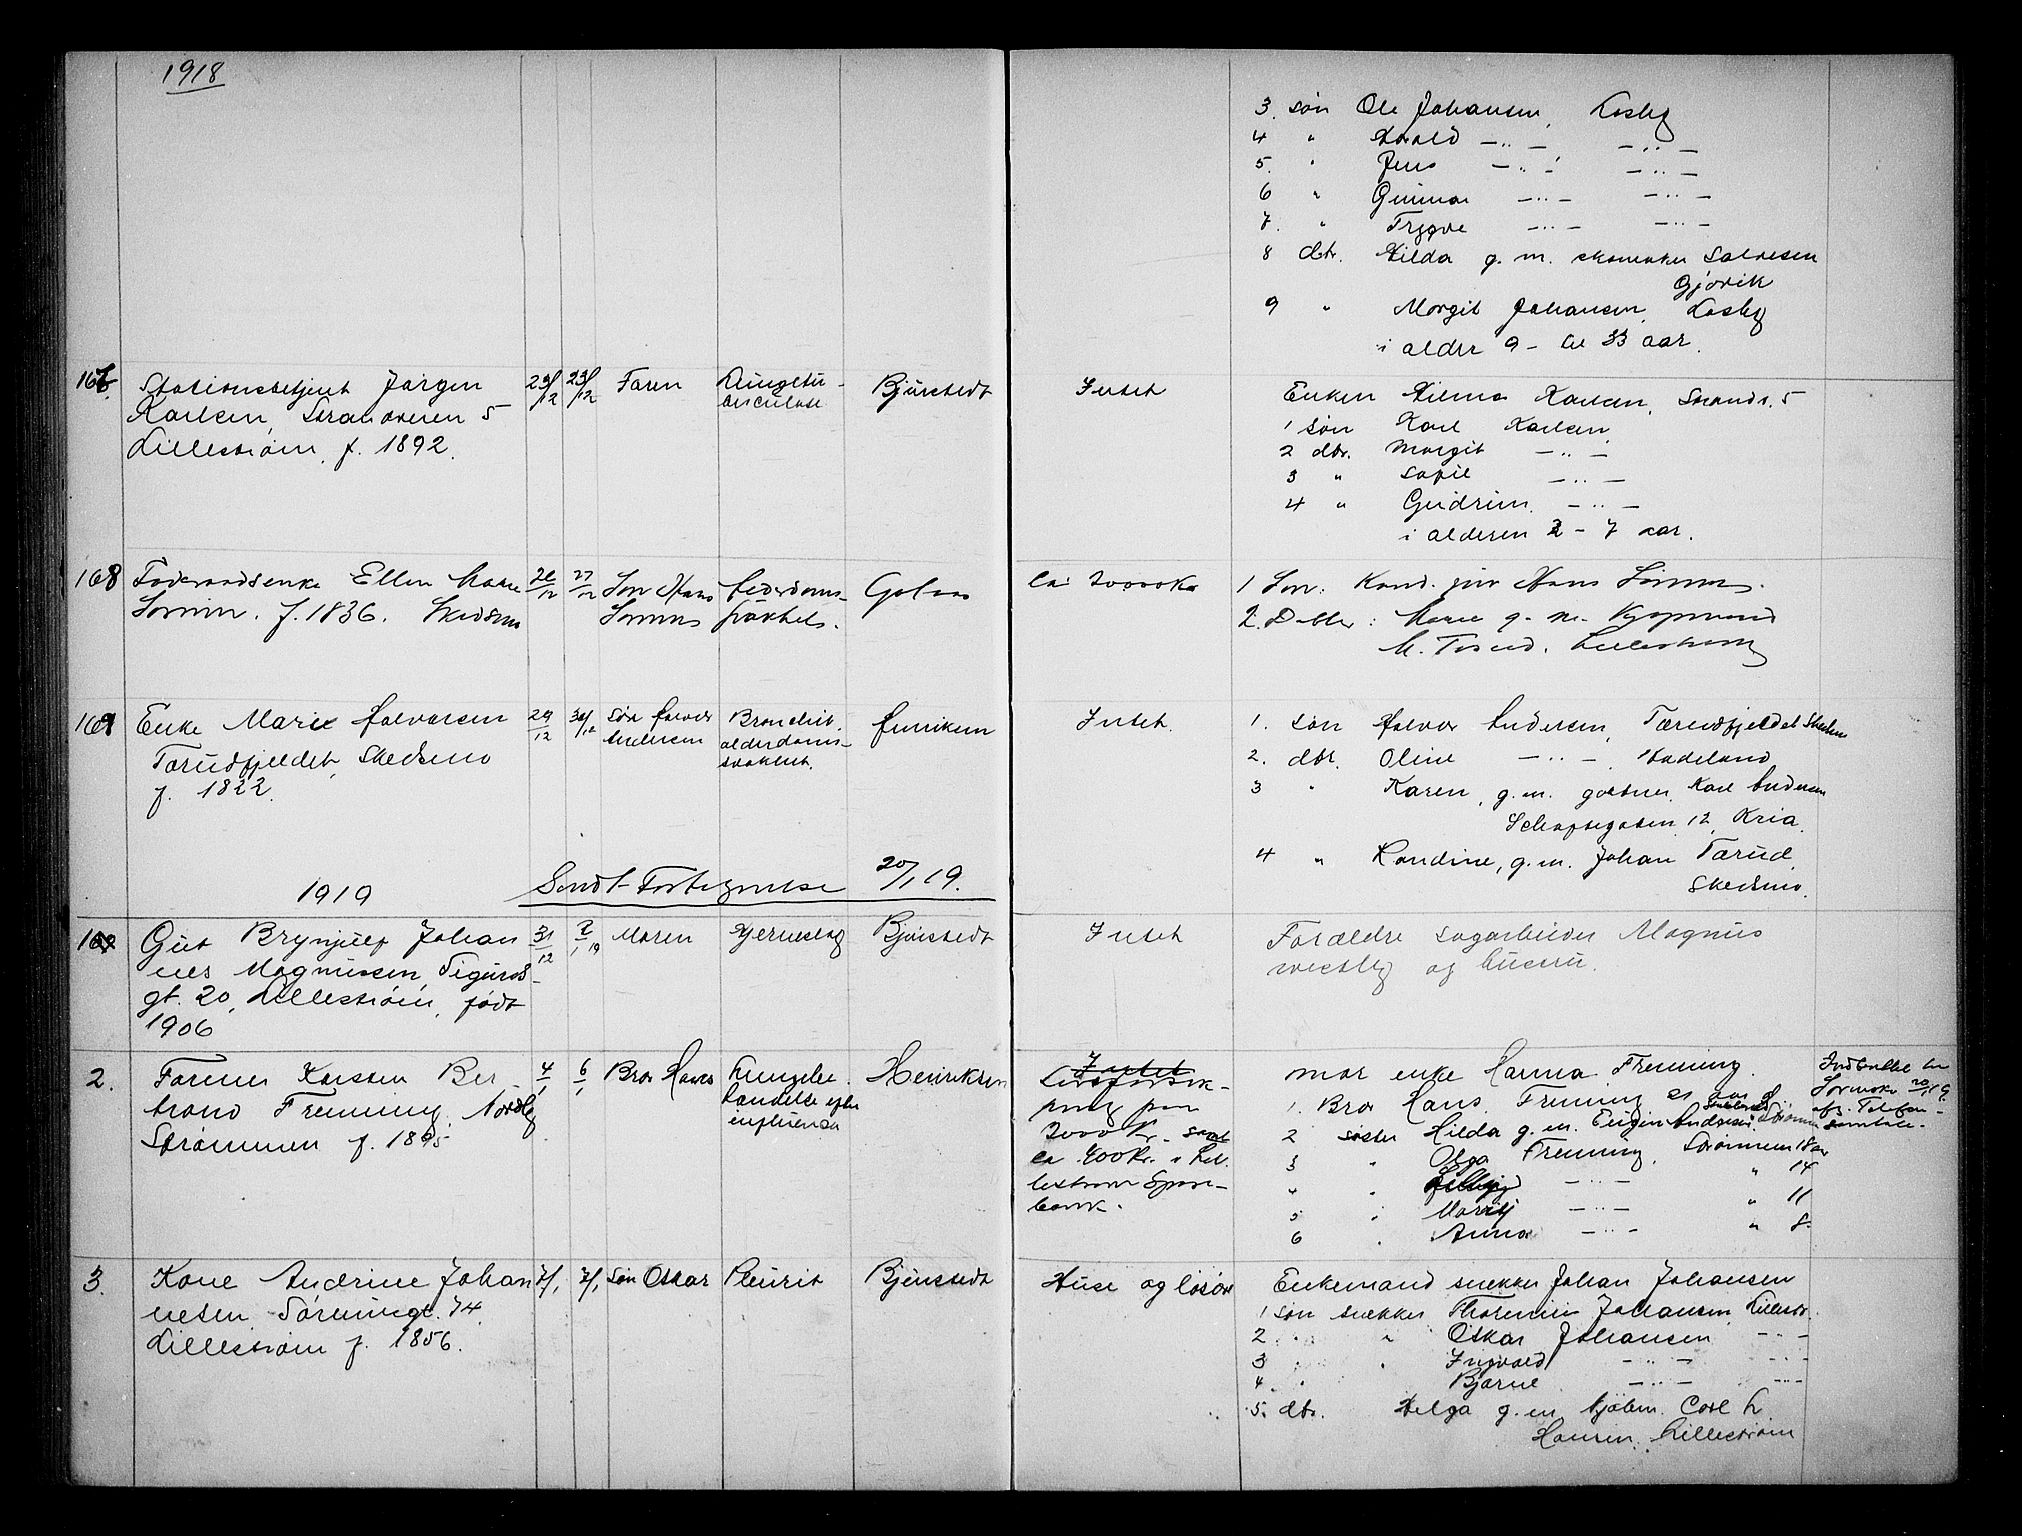 1918
3. søn Ole Johansen, Losby
4 " Harald —"— —"—
5. " Jens —"— —"—
6 " Gunnar —"— —"—
7. " Trygve —"— —"—
8 dtr. Hilda g. m. skomaker Salvesen
Gjøvik
9 " Margit Johansen, Losby
i alder 9 - til 33 aar.
167. Stationsbetjent Jørgen
Karlsen, Strandveien 5
Lillestrøm, f. 1892.
23/12 23/12 Faren Lungetu-
berculose Bjørstedt
Intet
Enken Hilma Karlsen, Strandv. 5
1 søn Karl Karlsen
2 dtr. Margit —"—
3 " Sofie —"—
4 " Gudrun —"—
i alderen 2 - 7 aar.
168 Føderaadsenke Ellen Marie
f. 1836. Skedsmo
26/12 27/12 Søn Hans
Alderdoms-
svakhet.
Ca 20000 Kr
1 Søn: Kand. jur Hans
2. Datter: Marie g. m. Kjøpmand
M. Tosud, Lillestrøm
169 Enke Marie Halvorsen
Tærudfjeldet, Skedsmo
f. 1822.
29/12 30/12 Søn Halvor
Andersen
Bronchit.
alderdoms-
svakhet.
Henriksen
Intet.
1. søn Halvor Andersen, Tærudfjeldet Skedsmo
2. dtr. Oline —"—, Hadeland
3 " Karen, g. m. gartner Karl Andersen
Schaftegaten 12, Kria.
4 " Randine, g. m. Johan Tærud,
Skedsmo.
1919
Sendt Fortegnelse 20/1 19.
169 Gut Brynjulf Johan
nes Magnussen, Sigurds-
gt. 20, Lillestrøm, født
1906
31/12 2/1 19 Moren Hjerneslag Bjørstedt
Intet
Forældre sagarbeider Magnus
Westby og hustru.
2. Former Karsten Ber-
trand Frenning, Nordby
Strømmen f. 1895
4/1 6/1 Bror Hans Lungebe-
tændelse efter
influensa
Henriksen
Intet
Livsforsik-
pring paa
2000 Kr. samt
ca 400 Kr. i Lil-
lestrøm Spare-
bank.
Mor enke Hanna Frenning.
1. Bror Hans Frenning 21 aar
2 søster Hilda g. m. Eugen Andersen, Strømmen
3 " Olga Frenning, Strømmen 18 aar
4 " —"— " 14
5 " Marit —"— " 11
6 " Anna —"— " 8
20/1 19.
3. Kone Andrine Johan
nesen, Tærudgt. 74.
Lillestrøm f. 1856.
7/1 7/1 Søn Oskar Pleurit Bjørstedt
Huse og løsøre
Enkemand snekker Johan Johansen
1 søn snekker Thormin Johansen, Lillestr.
2 " " Oskar Johansen —"—
3 " " Ingvald —"— —"—
4 " Bjarne —"— —"—
5. dtr. Helga g. m. kjøbm. Carl L
Hansen, Lillestrøm